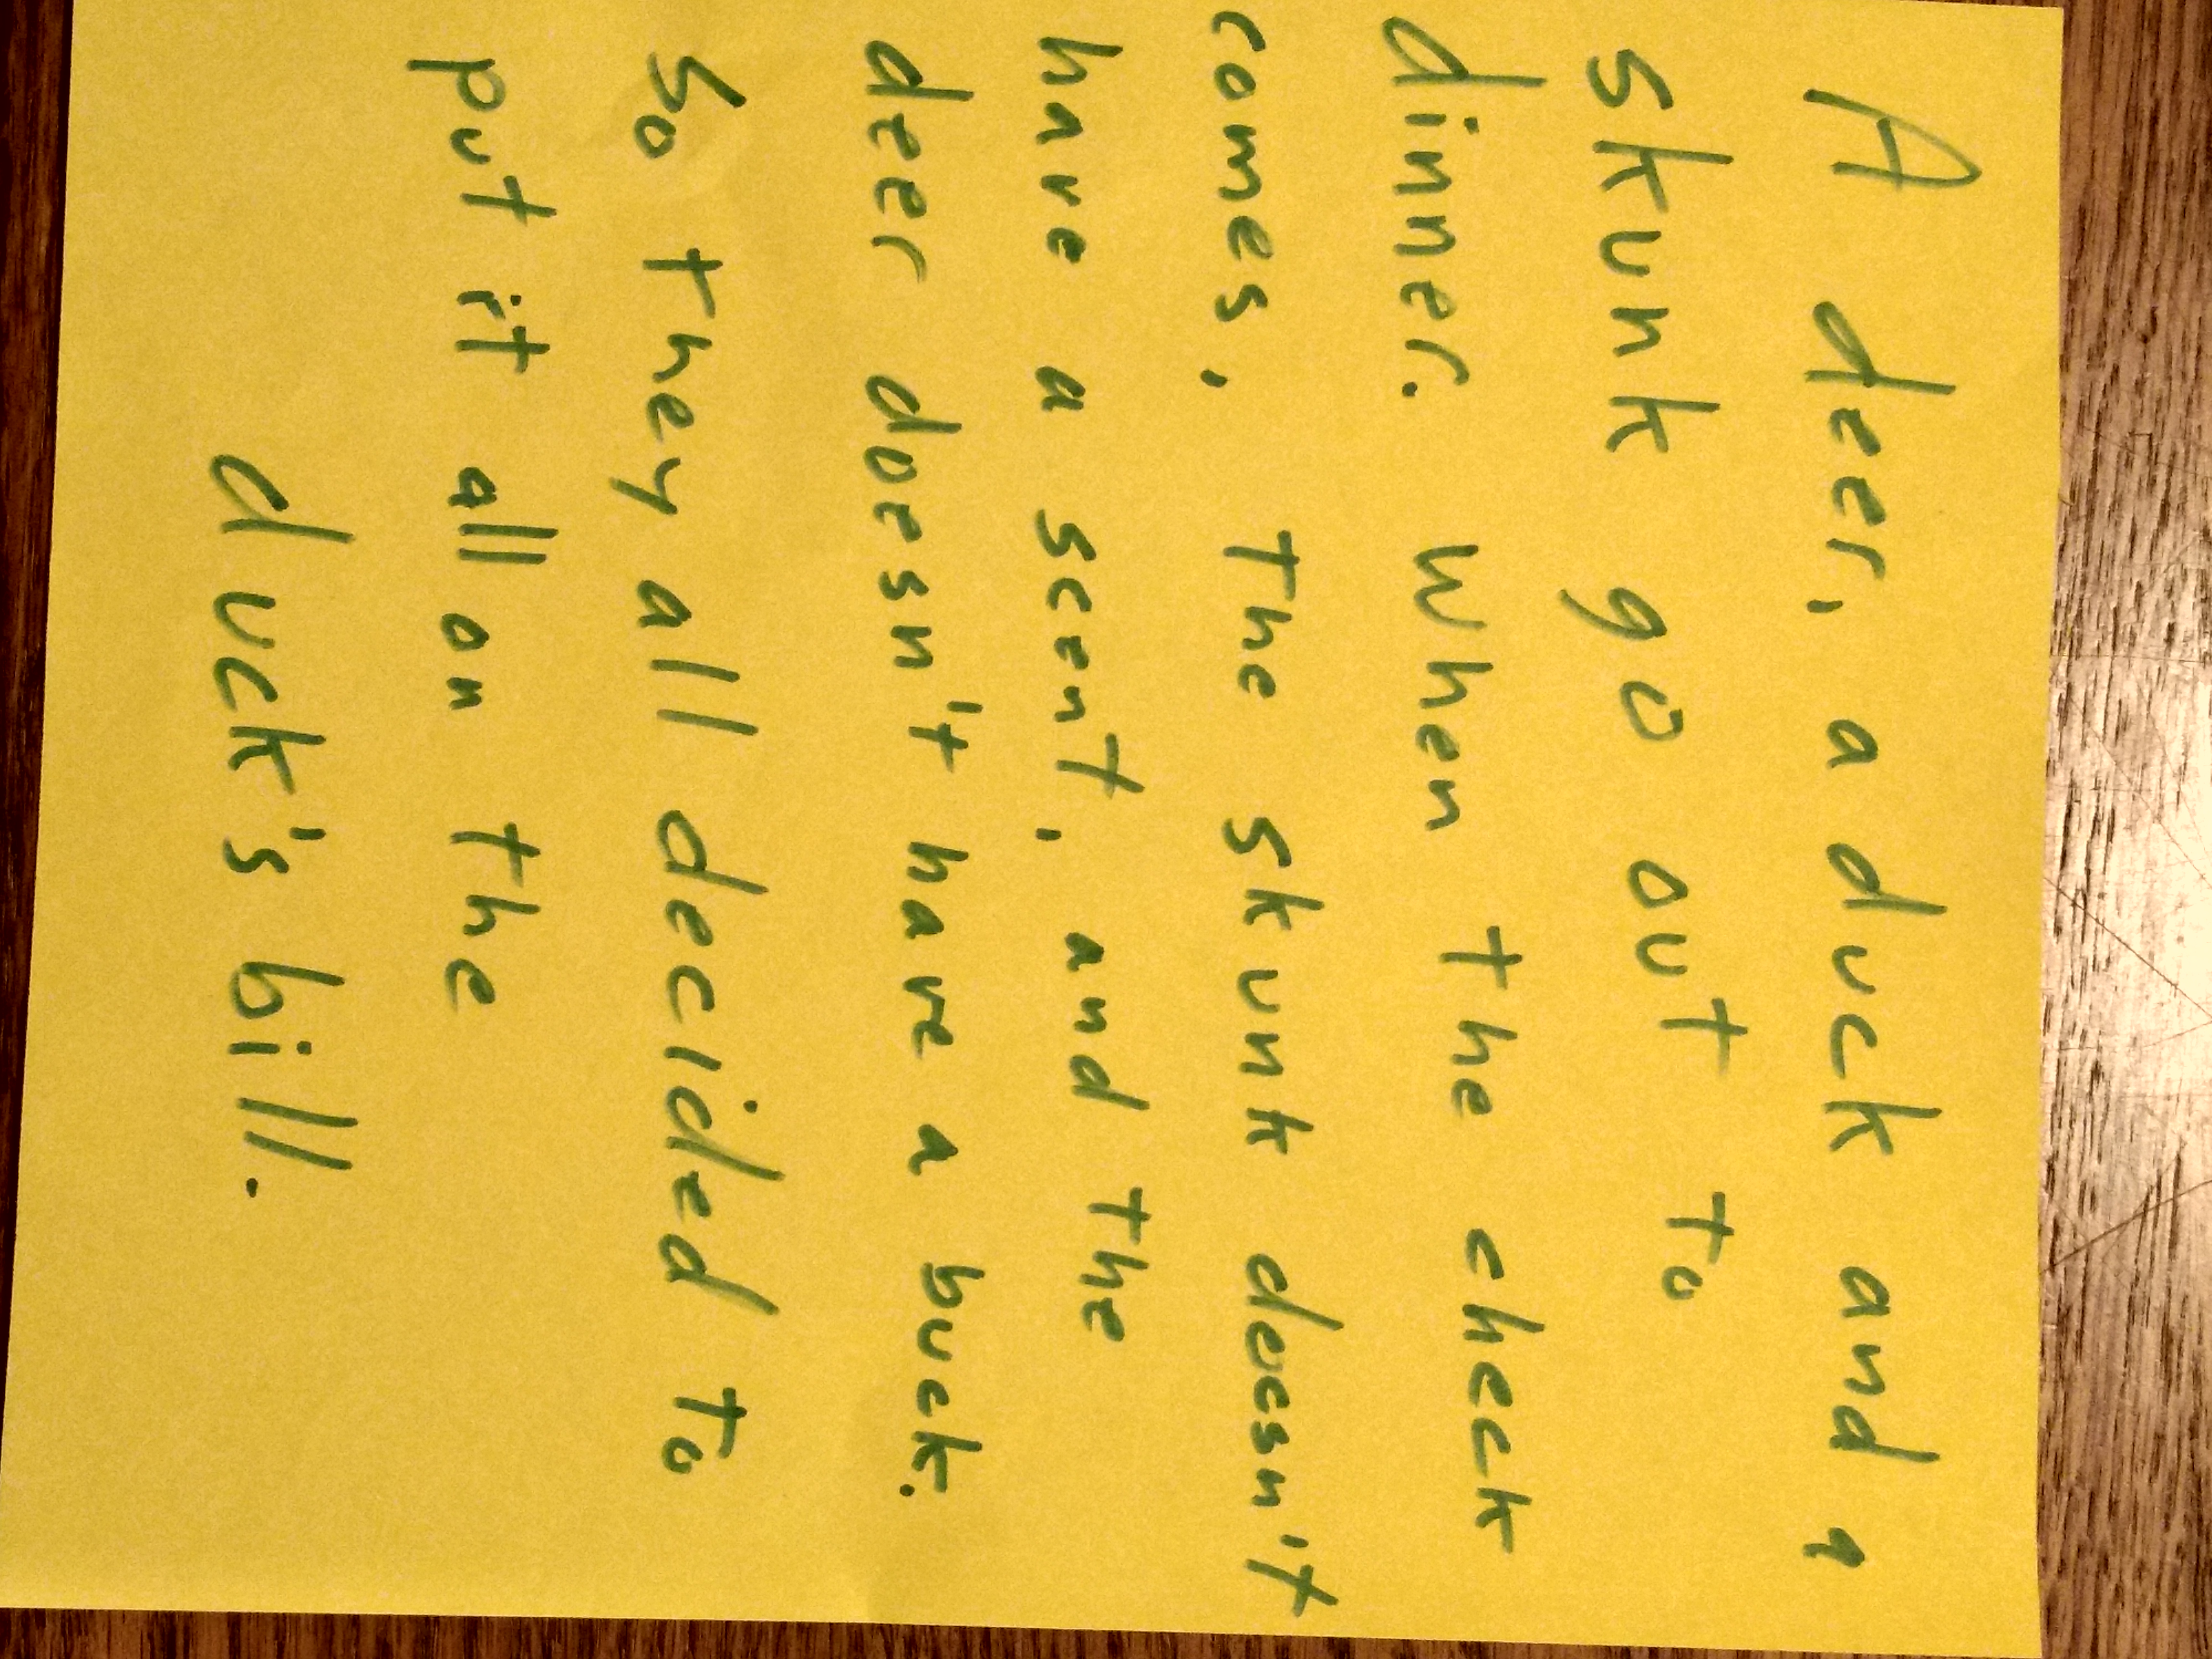 A deer, a duck and a
skunk go out to
dinner. When the check
comes, the skunk doesn't
have a scent, and the
deer doesn't have a buck.
So they all decided to
put it all on the
duck's bill.